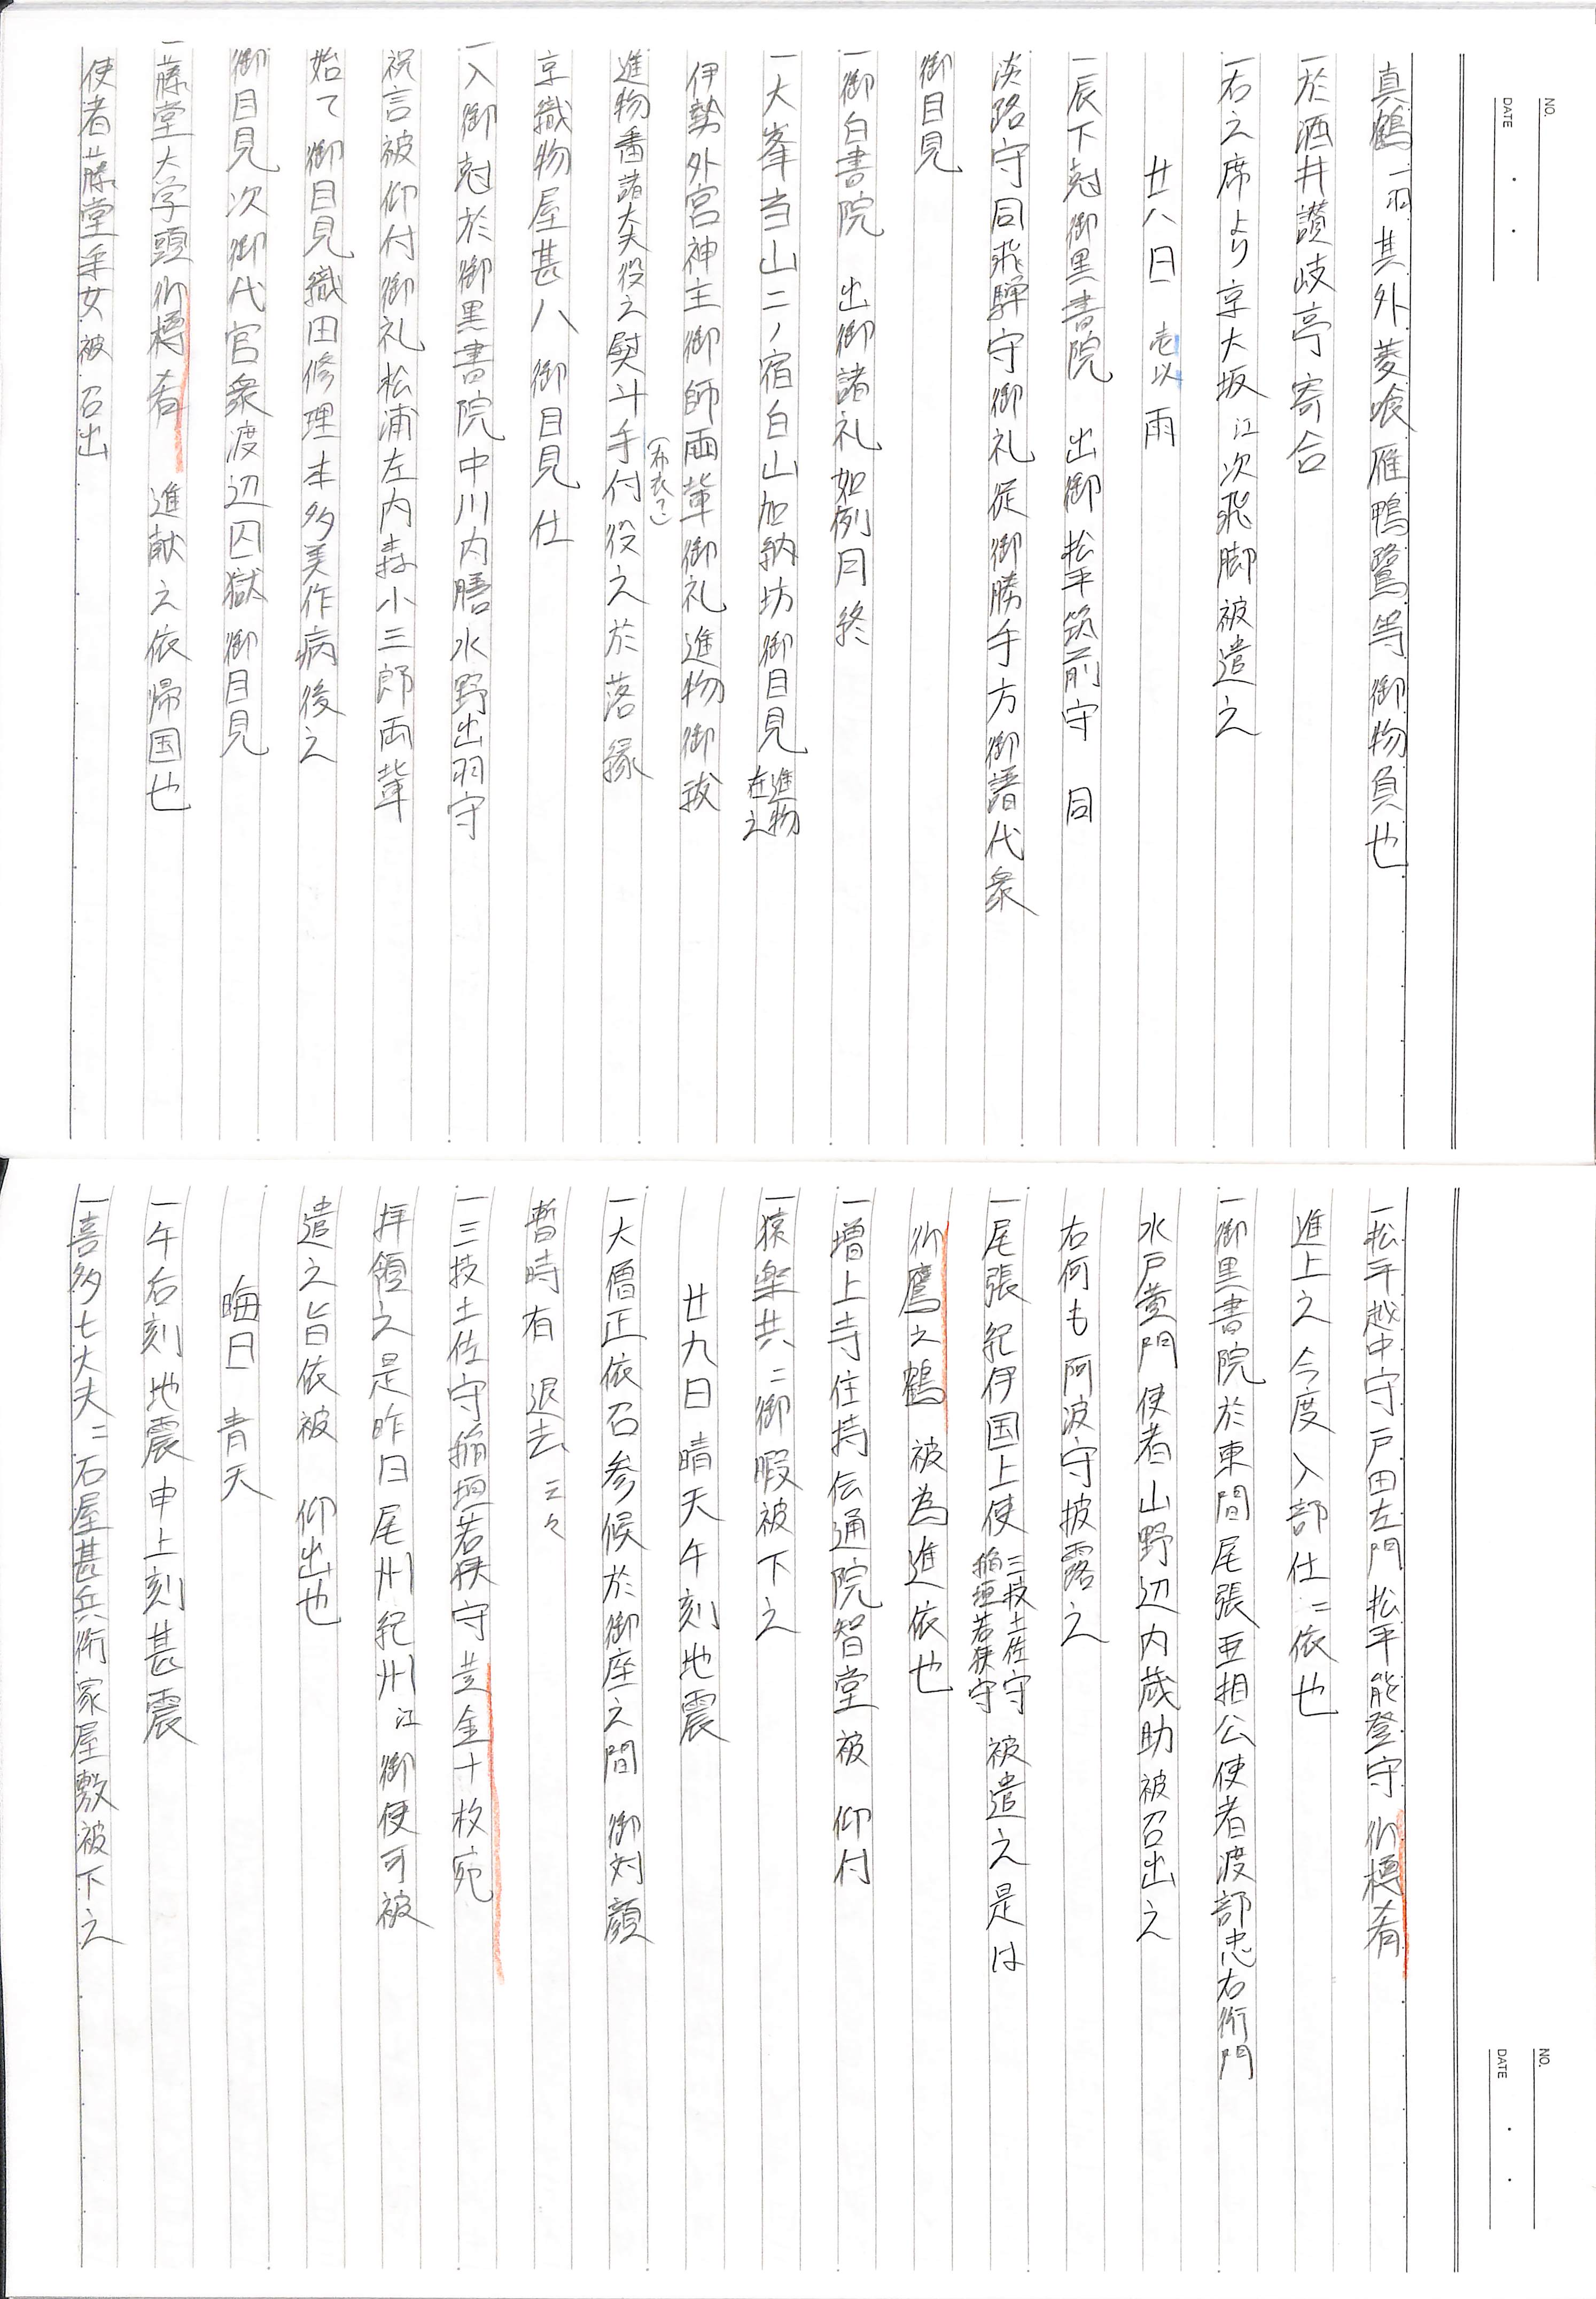 NO.
DATE ・ ・
真鶴一羽其外菱喰雁鴨鷺等 御物負也
一於酒井讃岐亭寄合
一右之席より京大坂江次飛脚被遣之
廿八日 雨
一辰下刻御黒書院 出御 松平筑前守 同
淡路守同飛騨守御礼従御勝手方御譜代衆
御目見
一御白書院 出御諸礼如例月終
一大峯当山二ノ宿白山加納坊御目見 進物在之
伊勢外宮神主御師両輩御礼進物御祓
進物番諸大夫役之熨斗手付役之於落縁
京織物屋甚八 御目見仕
一入御刻於御黒書院中川内膳水野出羽守
祝言被仰付御礼松浦左内森小三郎両輩
始て御目見織田修理本多美作病後之
御目見次御代官衆渡辺囚獄御目見
一藤堂大学頭御樽肴 進献之依帰国也
使者藤堂采女被召出
NO.
DATE ・ ・
一松平越中守戸田左門松平能登守御樽肴
進上之今度入部仕ニ依也
一御黒書院於東間尾張亜相公使者渡部忠右衛門
水戸黄門使者山野辺内蔵助被召出之
右何も阿波守披露之
一尾張紀伊国上使 三枝土佐守 稲垣若狭守 被遣之是は
御鷹之鶴 被為進依也
一増上寺住持伝通院智堂被 仰付
一猿楽共ニ御暇被下之
廿九日晴天午刻地震
一大僧正依召参候於御座之間 御対顔
暫時有 退去云々
一三枝土佐守稲垣若狭守黄金十枚宛
拝領之是昨日尾州紀州江御使可被
遣之旨依被 仰出也
晦日 青天
一午后刻地震申上刻甚震
一喜多七大夫ニ石屋甚兵衛家屋敷被下之